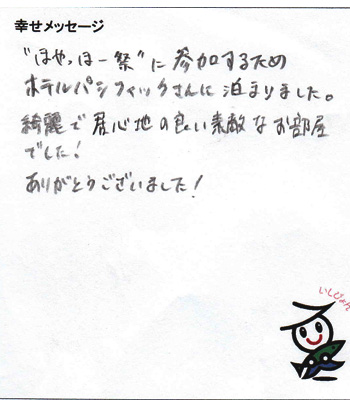 幸せメッセージ
"ほやっほー祭"に参加するため
ホテルパシフィックさんに泊まりました。
綺麗で居心地の良い素敵なお部屋
でした!
ありがとうございました!
いしぴょん